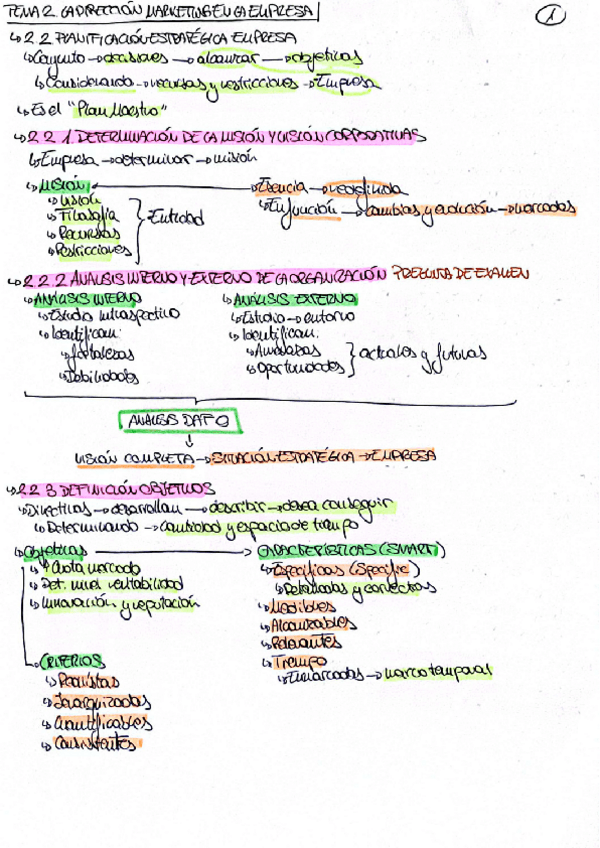 TEMA 2. LA DIRECCIÓN MARKETING EN LA EMPRESA
1
↳ 2.2 PLANIFICACIÓN ESTRATÉGICA EMPRESA
↳ Conjunto → decisiones → alcanzar → objetivos
↳ Considerando → recursos y restricciones → Empresa
↳ Es el "Plan Maestro"
↳ 2.2.1. DETERMINACIÓN DE LA MISIÓN Y VISIÓN CORPORATIVAS
↳ Empresa → determinar → misión
↳ MISIÓN
↳ Esencia → redefinida
↳ Visión
↳ En función → cambios y evolución → mercados
↳ Filosofía
↳ Recursos
↳ Restricciones
Entidad
↳ 2.2.2 ANALISIS INTERNO Y EXTERNO DE LA ORGANIZACIÓN PREGUNTA DE EXAMEN
↳ ANÁLISIS INTERNO
↳ ANÁLISIS EXTERNO
↳ Estudio introspectivo
↳ Estudio → entorno
↳ Identifican:
↳ Identifican:
↳ fortalezas
↳ Amenazas
↳ Debilidades
↳ Oportunidades
actuales y futuras
ANÁLISIS DAFO
↓
VISIÓN COMPLETA → SITUACIÓN ESTRATÉGICA → EMPRESA
↳ 2.2.3 DEFINICIÓN OBJETIVOS
↳ Directivos → desarrollan → describir → desea conseguir
↳ Determinando → cantidad y espacio de tiempo
↳ Objetivos → CARACTERÍSTICAS (SMART)
↳ Cuota mercado
↳ Específicos (Specific)
↳ Det. nivel rentabilidad
↳ Detallados y correctos
↳ Innovación y reputación
↳ Medibles
↳ Alcanzables
↳ Relevantes
CRITERIOS
↳ Tiempo
↳ Realistas
↳ Enmarcados → marco temporal
↳ Jerarquizados
↳ Cuantificables
↳ Consistentes